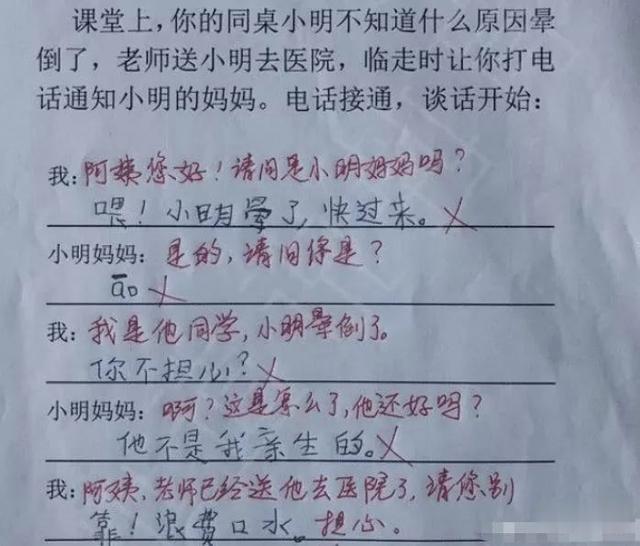 课堂上，你的同桌小明不知道什么原因晕
倒了，老师送小明去医院，临走时让你打电
话通知小明的妈妈。电话接通，谈话开始：
我：阿姨您好！请问是小明妈妈吗？
喂！小明晕了，快过来。
小明妈妈：是的，请问你是？
哦
我：我是他同学，小明晕倒了。
你不担心？
小明妈妈：啊？这是怎么了，他还好吗？
他不是我亲生的。
我：阿姨，老师已经送他去医院了，请您别
靠！浪费口水。担心。